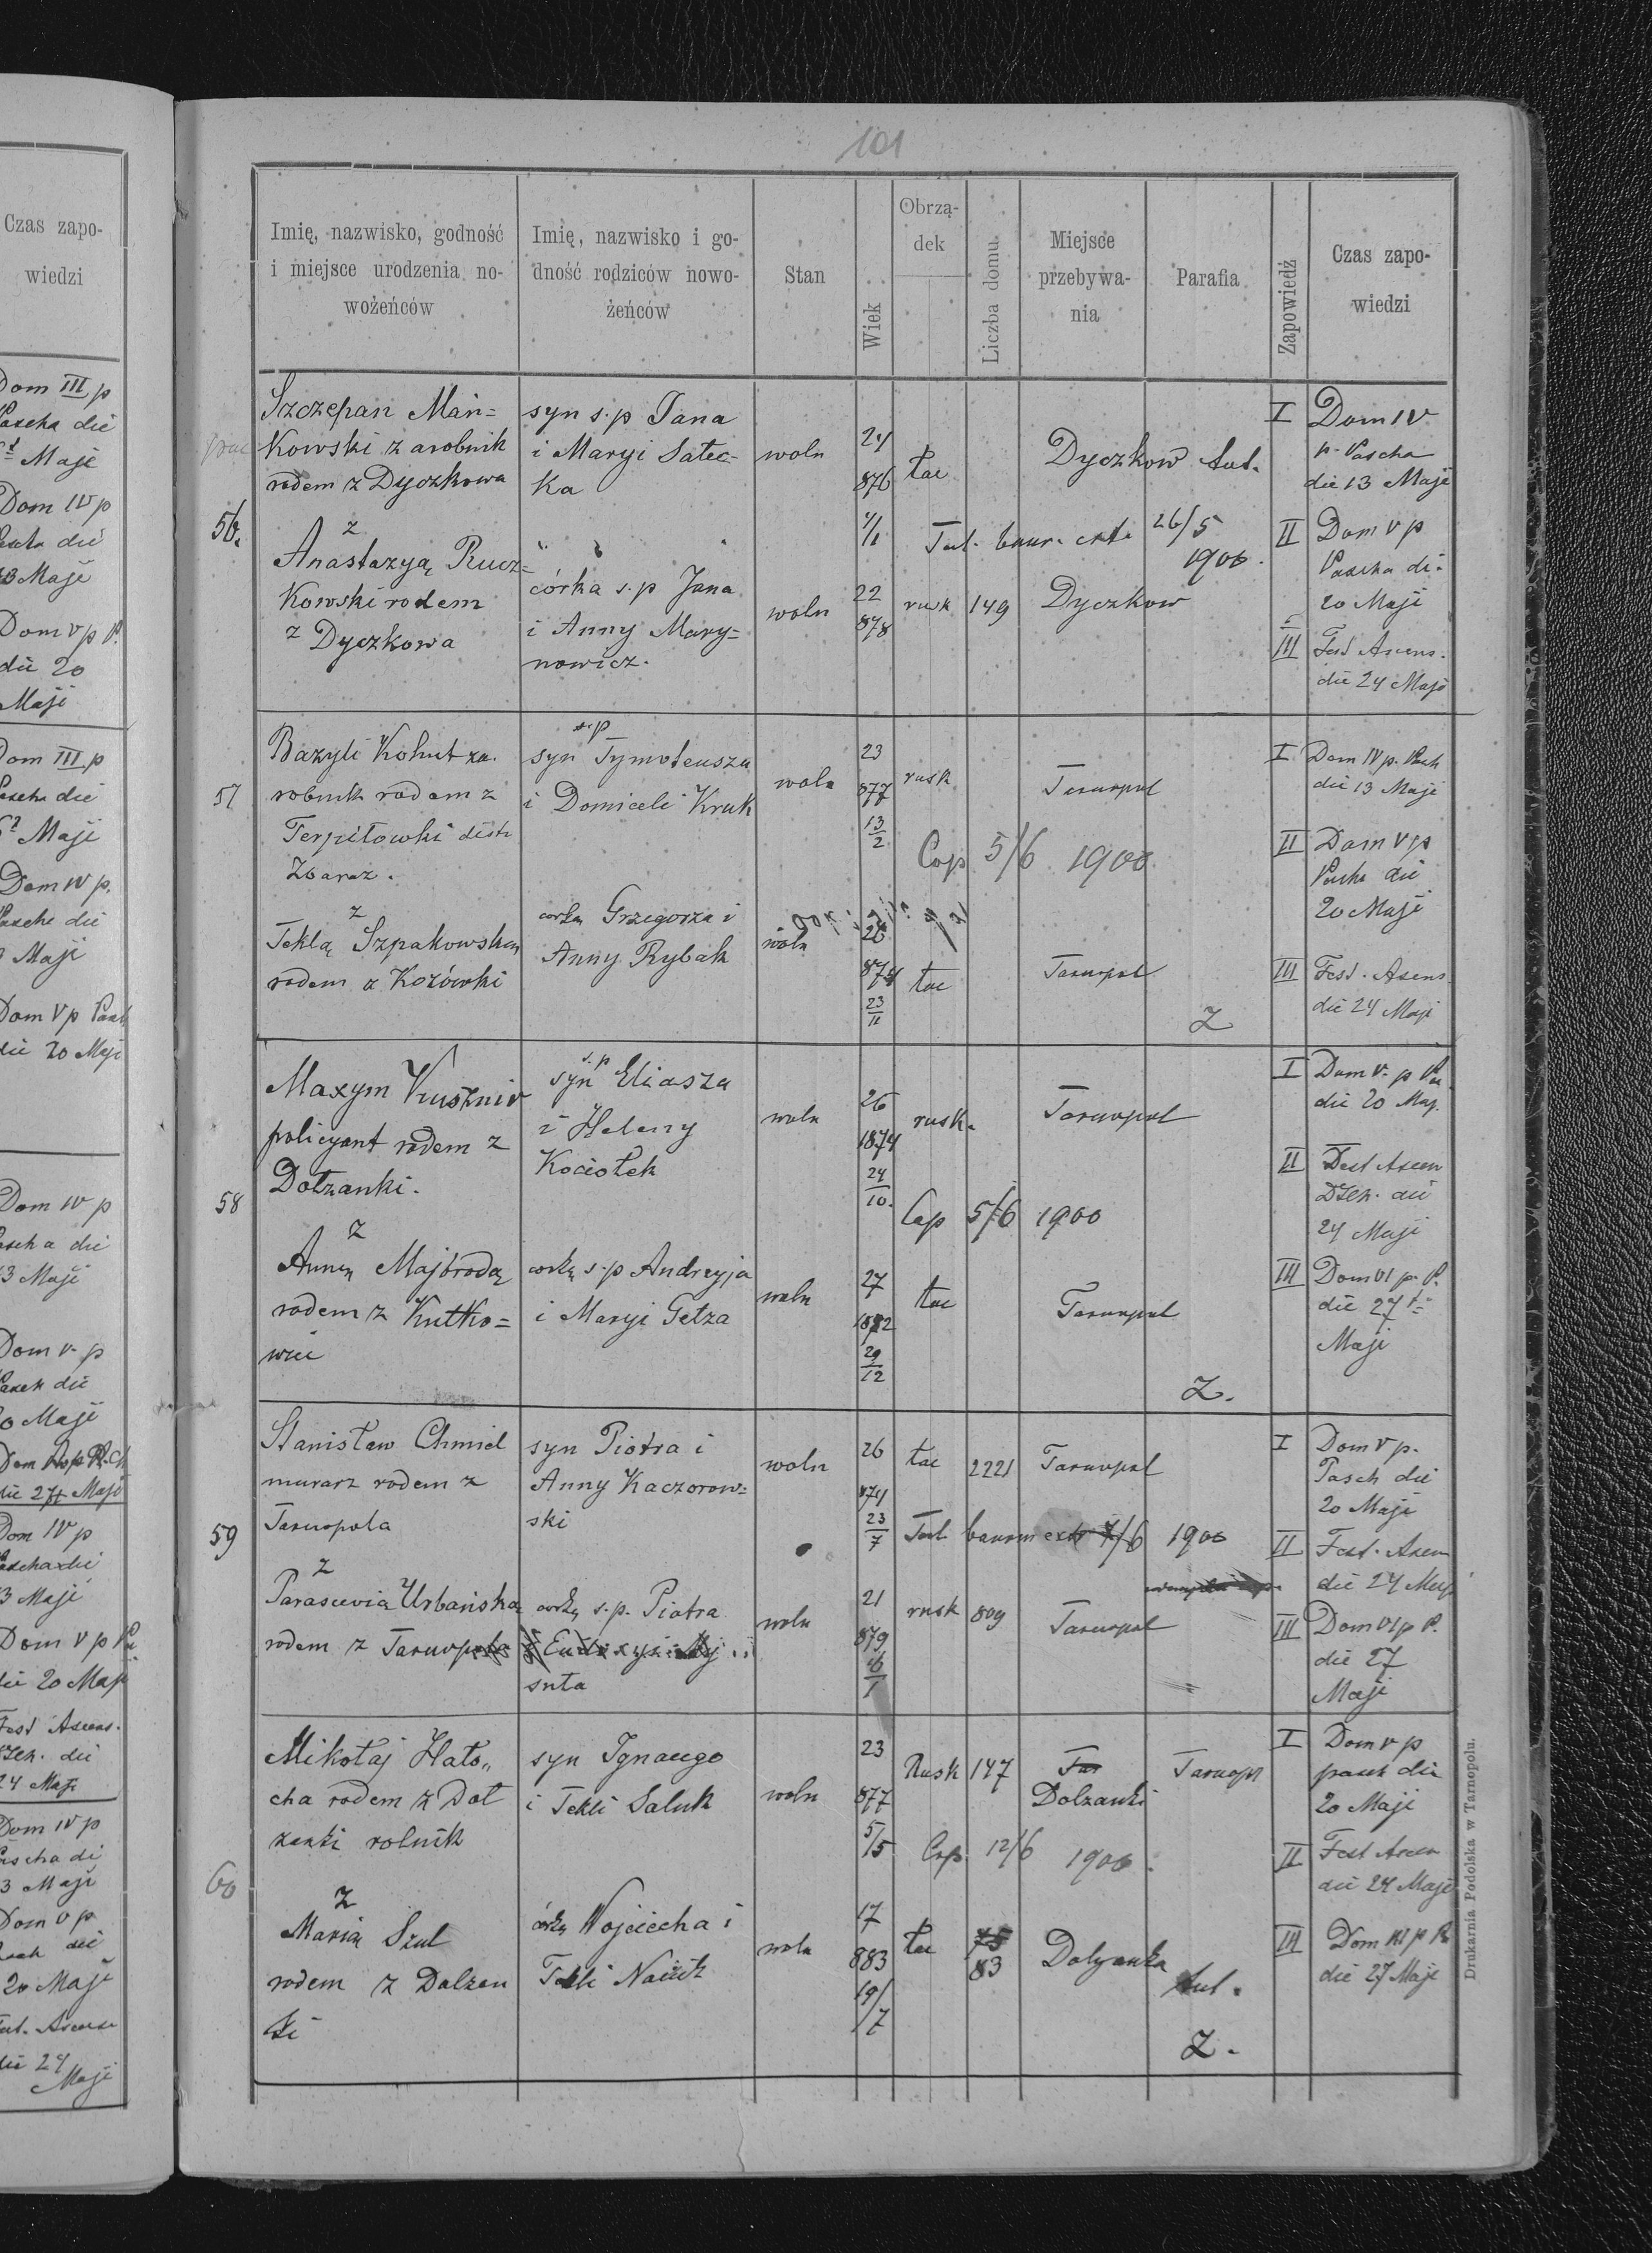 Czas zapo-
wiedzi
Dom III p
Pascha die
Maji
Dom IV p
die
13 Maji
Dom V p P.
die 20
Maji
Dom III p
Pascha die
Maji
Dom IV p.
Pasche die
Maji
Dom V p Pasch
die 20 Maji
Dom IV p
Pascha die
13 Maji
Dom V p
Pasch die
20 Maji
Dom
die 27 Maji
Dom IV p
Pascha die
13 Maji
Dom V p
die 20 Maji
Fest Ascens.
die
24 Maji
Dom IV p
Pascha di
13 Maji
Dom V p
Pasch die
20 Maji
Fest. Ascens
die 24
Maji
101
Imię, nazwisko, godność
i miejsce urodzenia no-
wożeńców
Imię, nazwisko i go-
dność rodziców nowo-
żeńców
Stan
Wiek
Obrzą-
dek
Liczba domu
Miejsce
przebywa-
nia
Parafia
Zapowiedź
Czas zapo-
wiedzi
56.
Szczepan Mań=
kowski zarobnik
rodem z Dyczkowa
z
Anastazyą Rucz=
kowski rodem
z Dyczkowa
syn s.p Jana
i Maryi Satec-
ka
córka s.p Jana
i Anny Mary=
nowicz.
woln
24
876
łac
Dyczkow tut.
Test. bann. extr. 26/5
1900.
woln
22
878
rusk 149 Dyczkow
I Dom IV
p. Pascha
die 13 Maji
II Dom V p
Pascha di.
20 Maji
III Fest Ascens.
die 24 Maji
57
Bazyli Kohut za.
robnik rodem z
Terpiłowki distr
Zbaraz.
z
Teklą Szpakowską
rodem z Kozówki
s.p
syn Tymoteusza
i Domiceli Kruk
corką Grzegorza i
Anny Rybak
woln
23
877
13
2
rusk
Tarnopol
Cop 5/6 1900
woln
26
874
23
11
łac
Tarnopol
Z
I Dom IV p. Pasch
die 13 Maji
II Dom V p
Pascha die
20 Maji
III Fest. Asens
die 24 Maji
58
Maxym Kusznir
policyant rodem z
Dołzanki.
z
Anną Majbrodą
rodem z Kutko=
wiec
s.p
syn Eliasza
i Heleny
Kociołek
corką s.p Andryja
i Maryi Getza
woln
26
1874
24
10.
rusk.
Tarnopol
Cop 5/6 1900
woln
27
1872
29
12
łac
Tarnopol
Z.
I Dom V. p
die 20 Maj.
II Fest Ascen
die
24 Maji
III Dom VI p. P.
die 27
Maji
59
Stanisław Chmiel
murarz rodem z
Tarnopola
z
Parascevią Urbańską
rodem z Tarnopola
syn Piotra i
Anny Kaczorow=
ski
corką s.p. Piotra
i Eudoxyi
woln
26
874
23
7
łac 2221 Tarnopol
Test bannm extr 7/6 1900
woln
21
879
rusk 809 Tarnopol
I Dom V p.
Pasch die
20 Maji
II Fest. Ascen
die 24 Maji
III Dom VI p P.
die 27
Maji
60
Mikołaj Hało„
cha rodem z Doł
zanki rolnik
z
Marią Szul
rodem z Dolzan
ki
syn Ignacego
i Tekli Saluk
córką Wojciecha i
Tekli
woln
23
877
5/5
Rusk 147 Tar
Dolzanki
Tarnopol
Cop 12/6 1900.
woln
17
883
19/7
łac 75
83
Dolzanka
tut.
Z.
I Dom V p
pasch die
20 Maji
II Fest Ascen
die 24 Maji
III Dom VI p
die 27 Maji
Drukarnia Podolska w Tarnopolu.